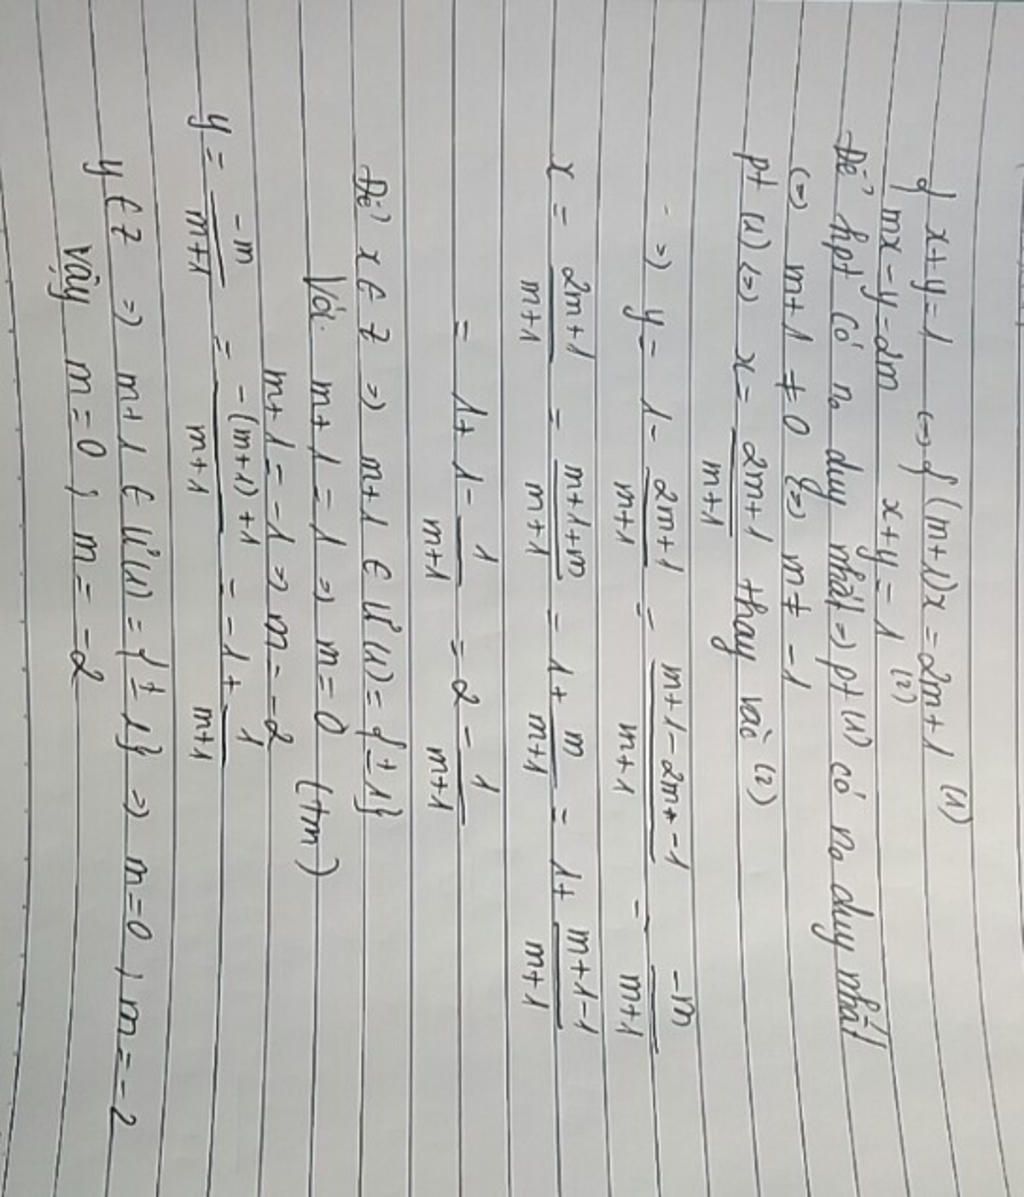 { x+y=1 <=> { (m+1)x = 2m+1 (1)
mx-y=2m x+y=1 (2)
Để hpt có n₀ duy nhất => pt (1) có n₀ duy nhất
(=) m+1 ≠ 0 (=) m ≠ -1
pt (1) (=) x = \frac{2m+1}{m+1} thay vào (2)
=) y = 1 - \frac{2m+1}{m+1} = \frac{m+1-2m-1}{m+1} = \frac{-m}{m+1}
x = \frac{2m+1}{m+1} = \frac{m+1+m}{m+1} = 1+ \frac{m}{m+1} = 1+ \frac{m+1-1}{m+1}
= 1+ 1- \frac{1}{m+1} = 2 - \frac{1}{m+1}
Để x ∈ Z => m+1 ∈ Ư(1) = {±1}
Với m+1 = 1 => m=0 (tm)
m+1 = -1 => m = -2
y = \frac{-m}{m+1} = \frac{-(m+1)+1}{m+1} = -1 + \frac{1}{m+1}
y ∈ Z => m+1 ∈ Ư(1) = {±1} => m=0, m=-2
Vậy m=0; m=-2